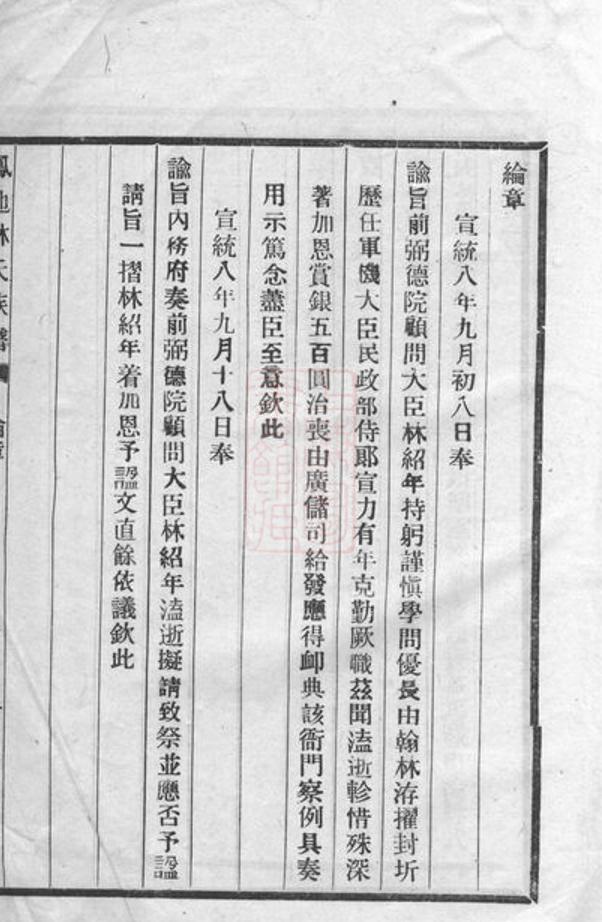 綸章
宣統八年九月初八日奉
諭旨前弼德院顧問大臣林紹年持躬謹愼學問優長由翰林洊擢封圻
歷任軍機大臣民政部侍郞宣力有年克勤厥職茲聞溘逝軫惜殊深
著加恩賞銀五百圓治喪由廣儲司給發應得卹典該衙門察例具奏
用示篤念藎臣至意欽此
宣統八年九月十八日奉
諭旨內務府奏前弼德院顧問大臣林紹年溘逝擬請致祭並應否予諡
請旨一摺林紹年着加恩予諡文直餘依議欽此
鳳池林氏族譜